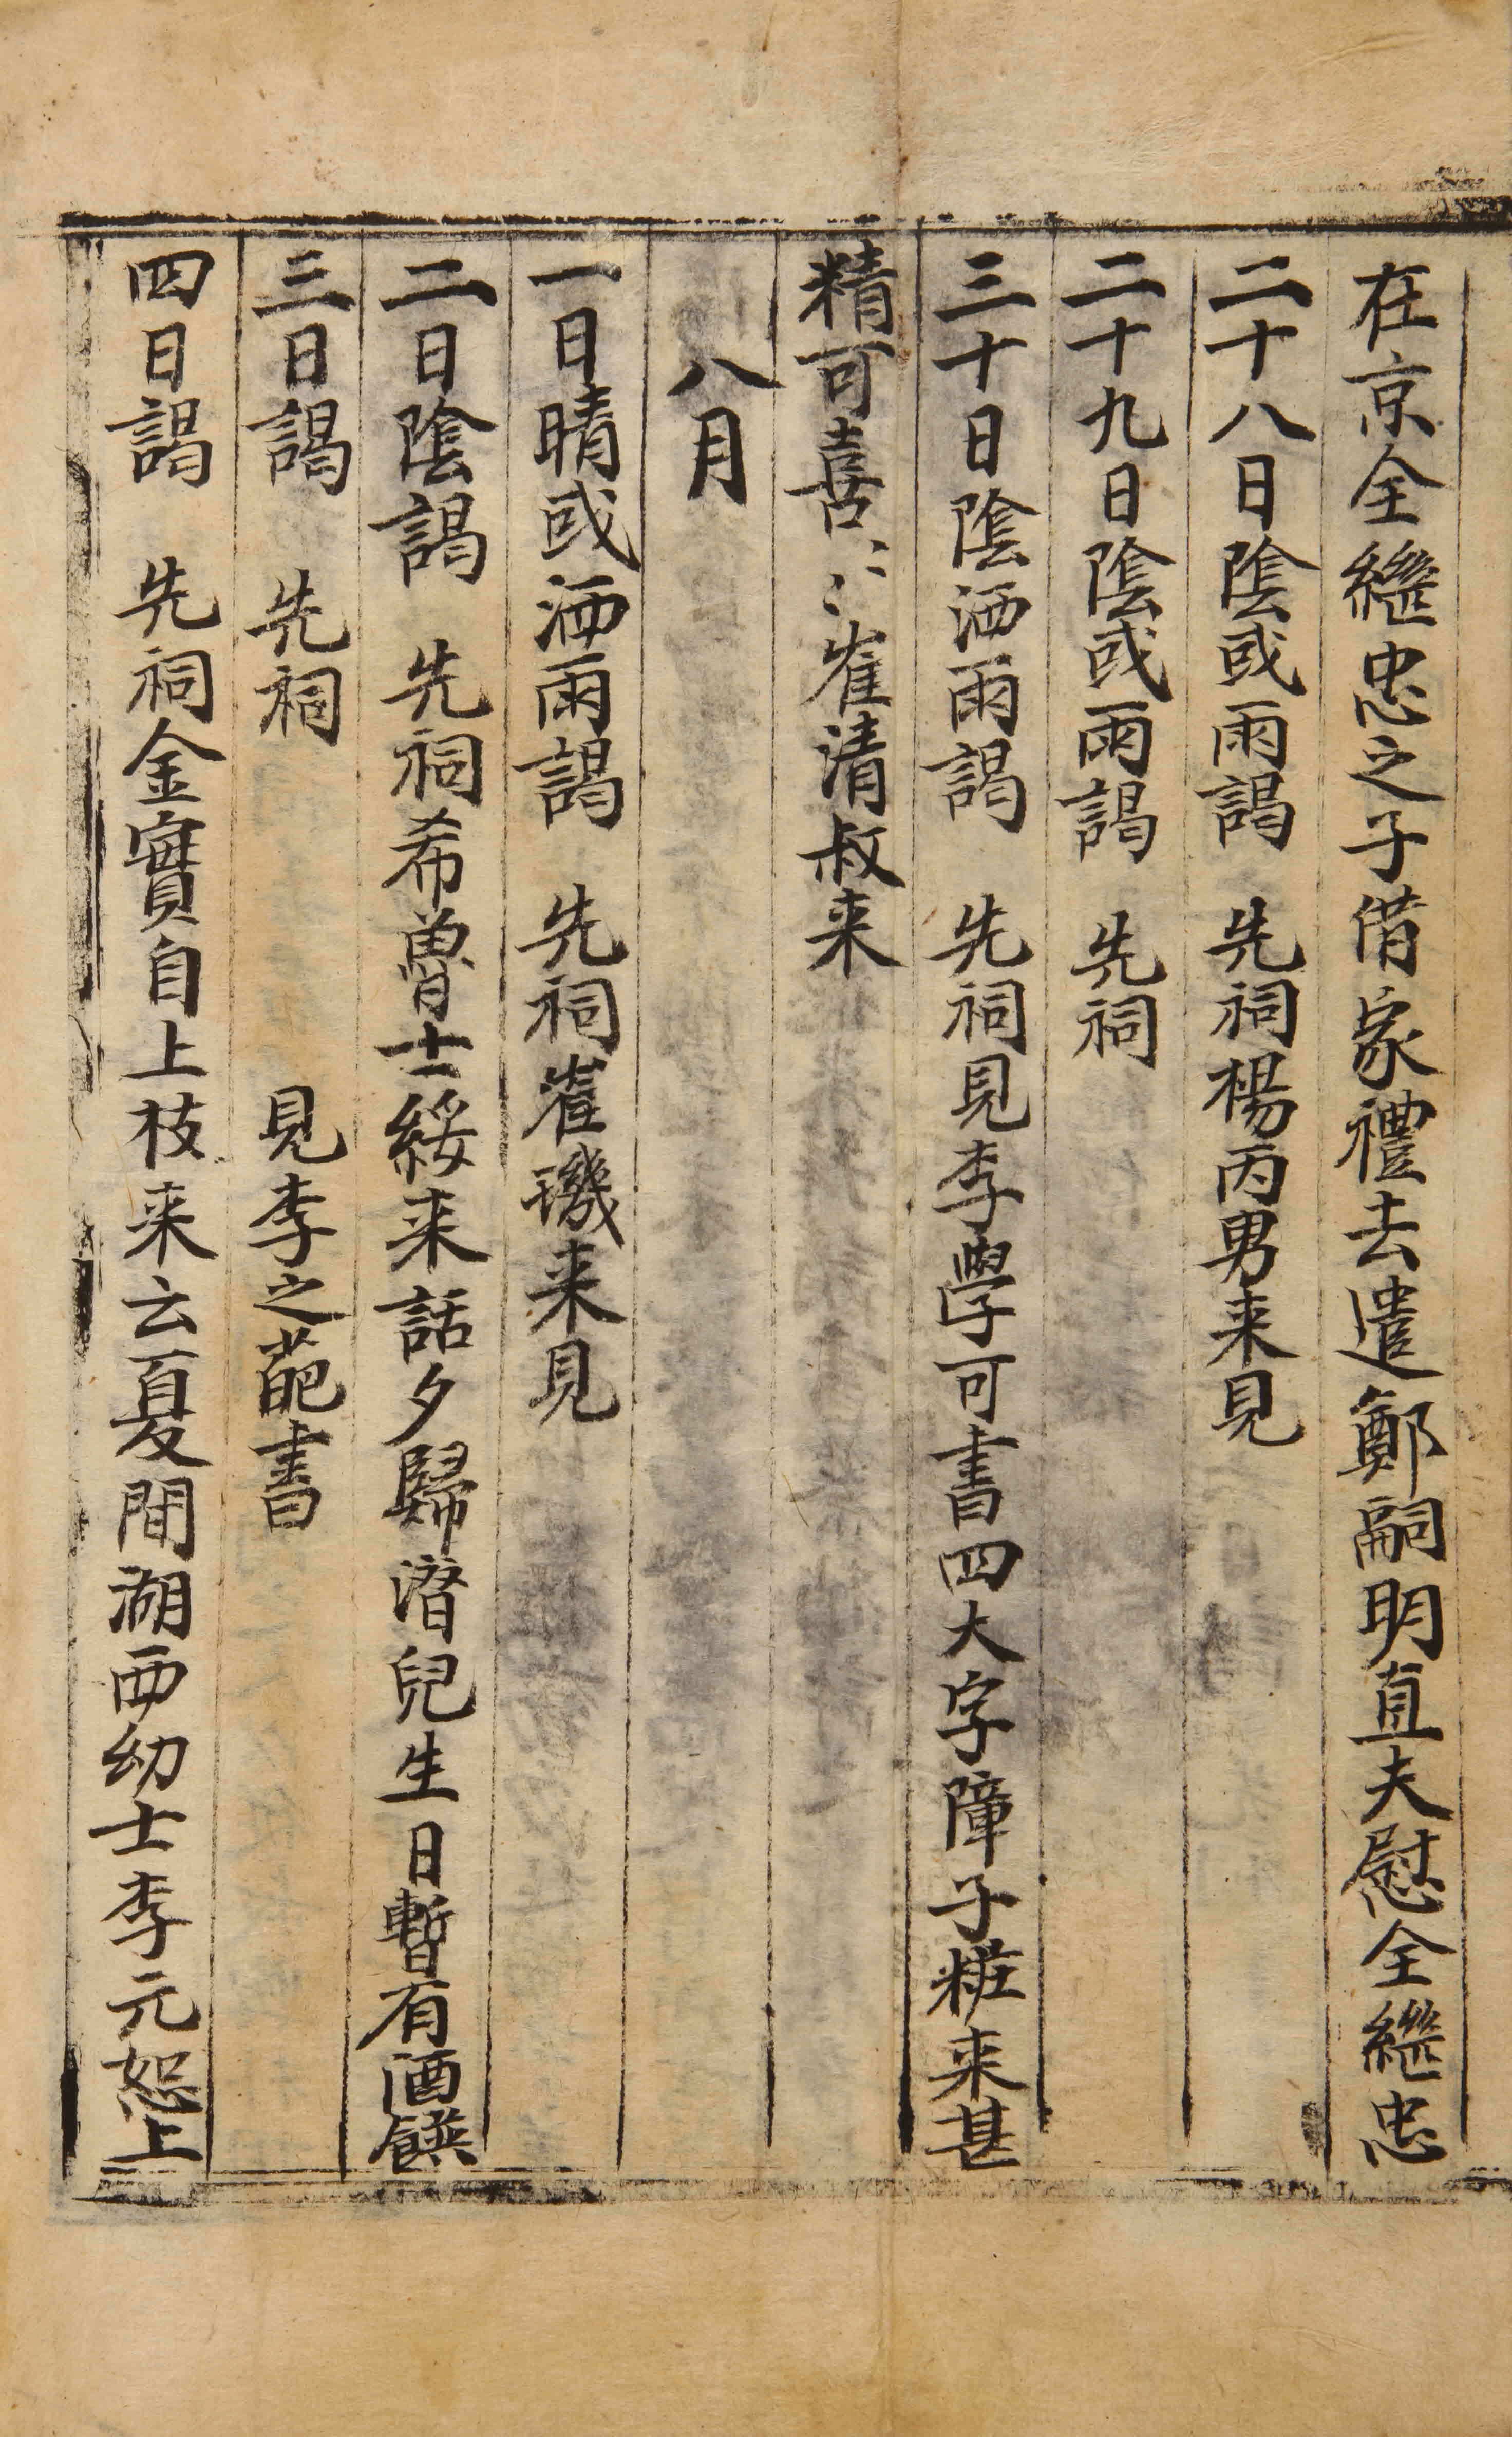 在京全繼忠之子借家禮去遣鄭嗣明直夫慰全繼忠
二十八日陰或雨謁　先祠楊丙男来見
二十九日陰或雨謁　先祠
三十日陰洒雨謁　先祠見李學可書四大字障子粧来甚
精可喜〻〻崔清叔来
八月
一日晴或洒雨謁　先祠崔璣来見
二日陰謁　先祠希魯士綏来話夕歸濳兒生日暫有酒饌
三日謁　先祠　見李之葩書
四日謁　先祠金實自上枝来云夏間湖西幼士李元恕上